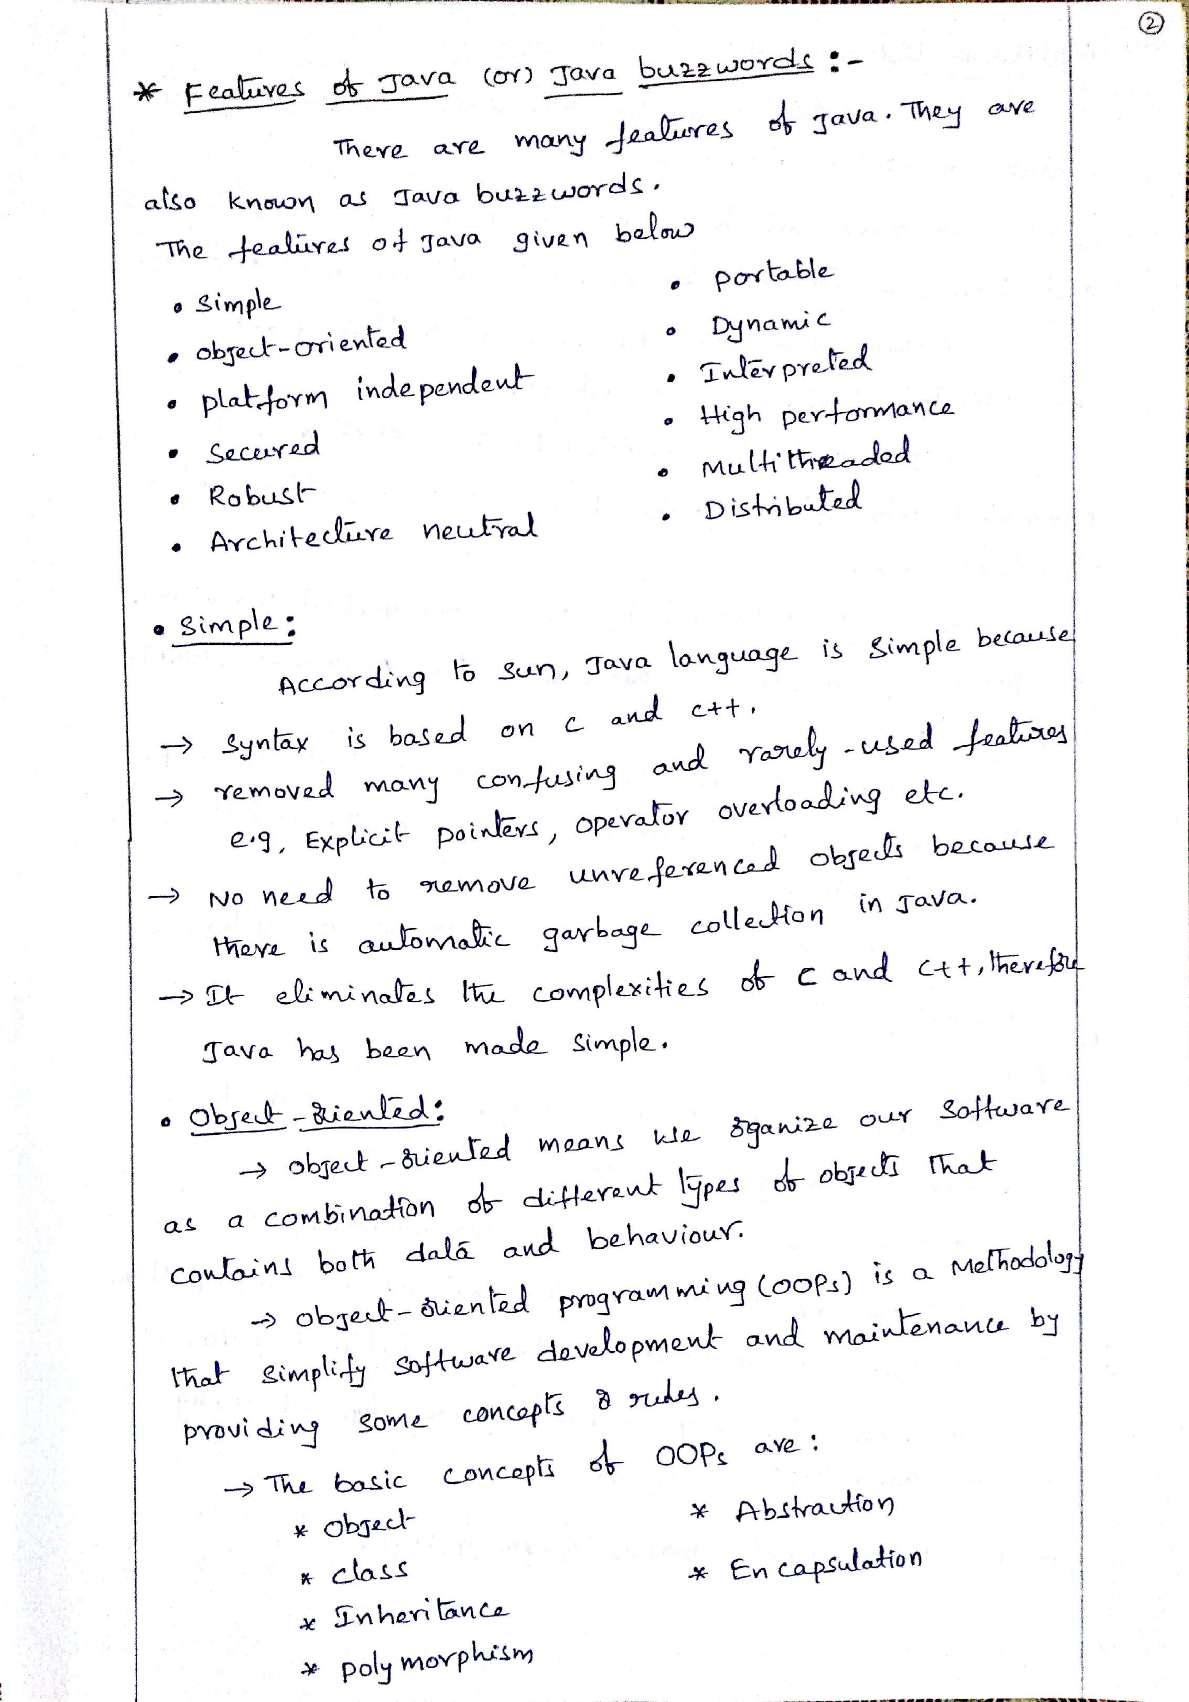 2
* Features of Java (or) Java buzzwords :-
There are many features of Java. They are
also known as Java buzzwords.
The features of Java given below
• Simple
• object-oriented
• platform independent
• Secured
• Robust
• Architecture neutral
• portable
• Dynamic
• Interpreted
• High performance
• Multithreaded
• Distributed
• Simple:
According to sun, Java language is simple because
→ syntax is based on c and c++.
→ removed many confusing and rarely-used features
e.g, Explicit pointers, operator overloading etc.
→ No need to remove unreferenced objects because
there is automatic garbage collection in Java.
→ It eliminates the complexities of c and c++, therefore
Java has been made simple.
• Object-oriented:
→ object-oriented means we organize our software
as a combination of different types of objects that
contains both data and behaviour.
→ object-oriented programming (OOPs) is a Methodology
that simplify software development and maintenance by
providing some concepts & rules.
→ The basic concepts of OOPs are:
* Object
* class
* Inheritance
* polymorphism
* Abstraction
* Encapsulation